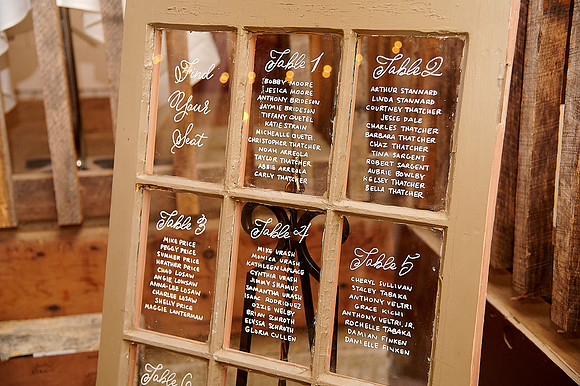 Find
Your
Seat
Table 1
BOBBY MOORE
JESSICA MOORE
ANTHONY BRIDESON
JAYMIE BRIDESON
TIFFANY QUETEL
KATIE STRAIN
MICHEALLE QUETEL
CHRISTOPHER THATCHER
NOAH ARREOLA
TAYLOR THATCHER
ABBIE ARREOLA
CARLY THATCHER
Table 2
ARTHUR STANNARD
LINDA STANNARD
COURTNEY THATCHER
JESSE DALE
CHARLES THATCHER
BARBARA THATCHER
CHAZ THATCHER
TINA SARGENT
ROBERT SARGENT
AUBRIE BOWLBY
KELSEY THATCHER
BELLA THATCHER
Table 3
MIKE PRICE
PEGGY PRICE
SUMMER PRICE
HEATHER PRICE
CHAD LOSAW
ANGIE LOWSAW
ANNA-LEE LOSAW
CHARLEE LOSAW
SHELLY PRICE
MAGGIE LANTERMAN
Table 4
MIKE URASH
MONICA URASH
KATHLEEN LAPLACA
CYNTHIA URASH
JIMMY SKAMUS
SAMANTHA URASH
ISAAC RODRIGUEZ
OZZIE WELBY
BRIAN SCHROTH
ELYSSA SCHROTH
GLORIA CULLEN
Table 5
CHERYL SULLIVAN
STACEY TABAKA
ANTHONY VELTRI
GRACE KICHI
ANTHONY VELTRI, JR.
ROCHELLE TABAKA
DAMIAN FINKEN
DANIELLE FINKEN
Table 6